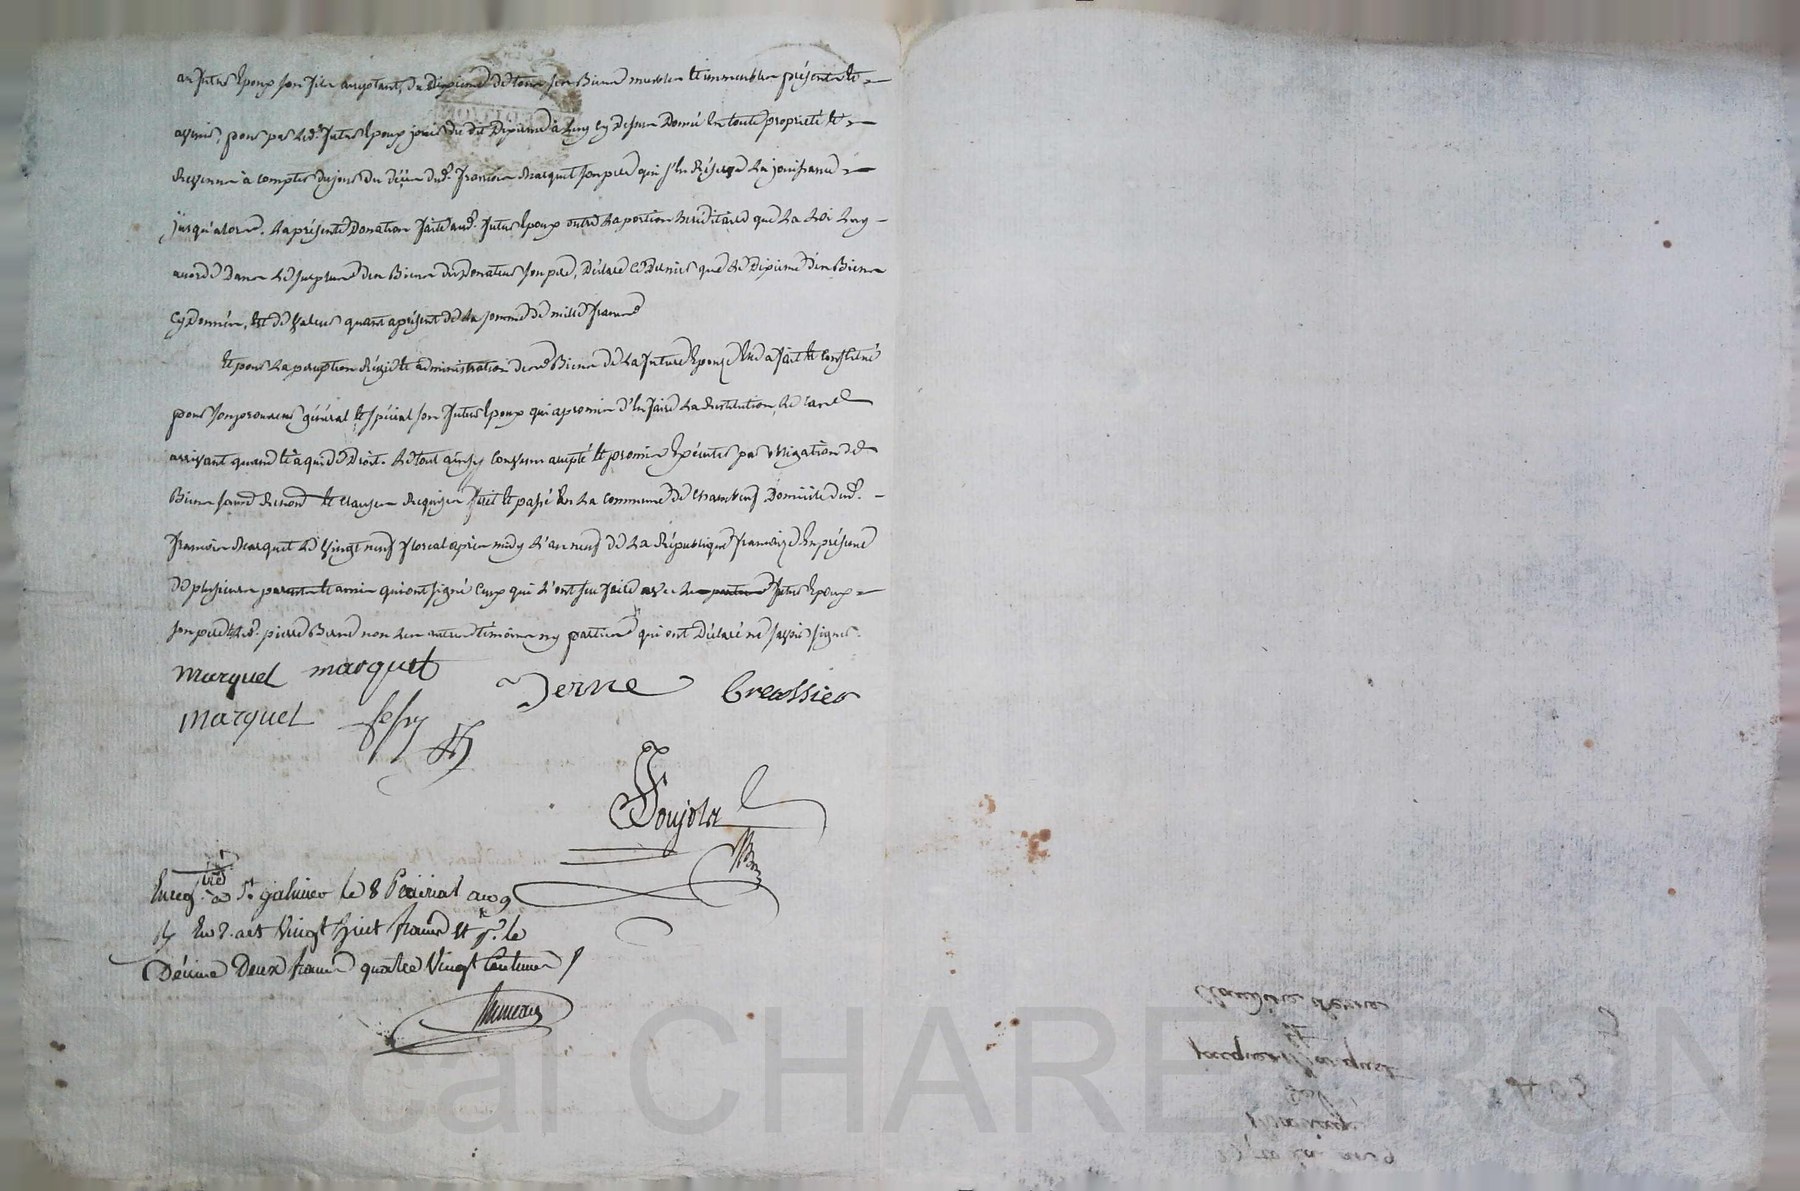 au futur Epoux son fils acceptant, du dixieme de tous ses Biens meubles et immeubles présents et
avenir, pour par led. futur Epoux jouir du dit Dixieme à luy cy dessus Donné en toute propriété et
à compter du jour du décès dud. françois Marquet son pere qui s'en Réserve La jouissance
jusqu'alors. La présente Donation faite aud. futur Epoux outre La portion héréditaire que La Loi Luy
accorde Dans Le surplus des Biens du Donateur son pere, Déclare ce Dernier que Le Dixieme des Biens
Cy Donnés, Est de Valeur quant aprésent de La somme de mille francs
Et pour La perception Régie et administration des Biens de La future Epouse Elle a fait et Constitué
pour son procureur général et spécial son futur Epoux qui a promis d'En faire La Restitution, Le Cas
arrivant quand et à qui de Droit. Le tout ainsy Convenu accepté et promis Exécuter par obligation de
Biens et Clauses Requises fait et passé En La Commune de Chambeuf Domicile dud.
françois Marquet Le Vingt neuf floreal après midy L'an neuf de La République française En présence
de plusieurs parents et amis qui ont signé Ceux qui L'ont sçu faire avec Le futur Epoux
son pere et led. pierre non Les autres témoins ny parties qui ont Déclaré ne sçavoir signer.
Marquet marquet
Derne Creassier
Marquet
Soujola
Enreg. tré à St galmier le 8 Prairial an 9
Vingt huit francs et pr. le
Décime Deux francs quatre Vingt Centimes
Claudine Derne
et
Jacques Marquet
an 9
Pascal CHAREYRON